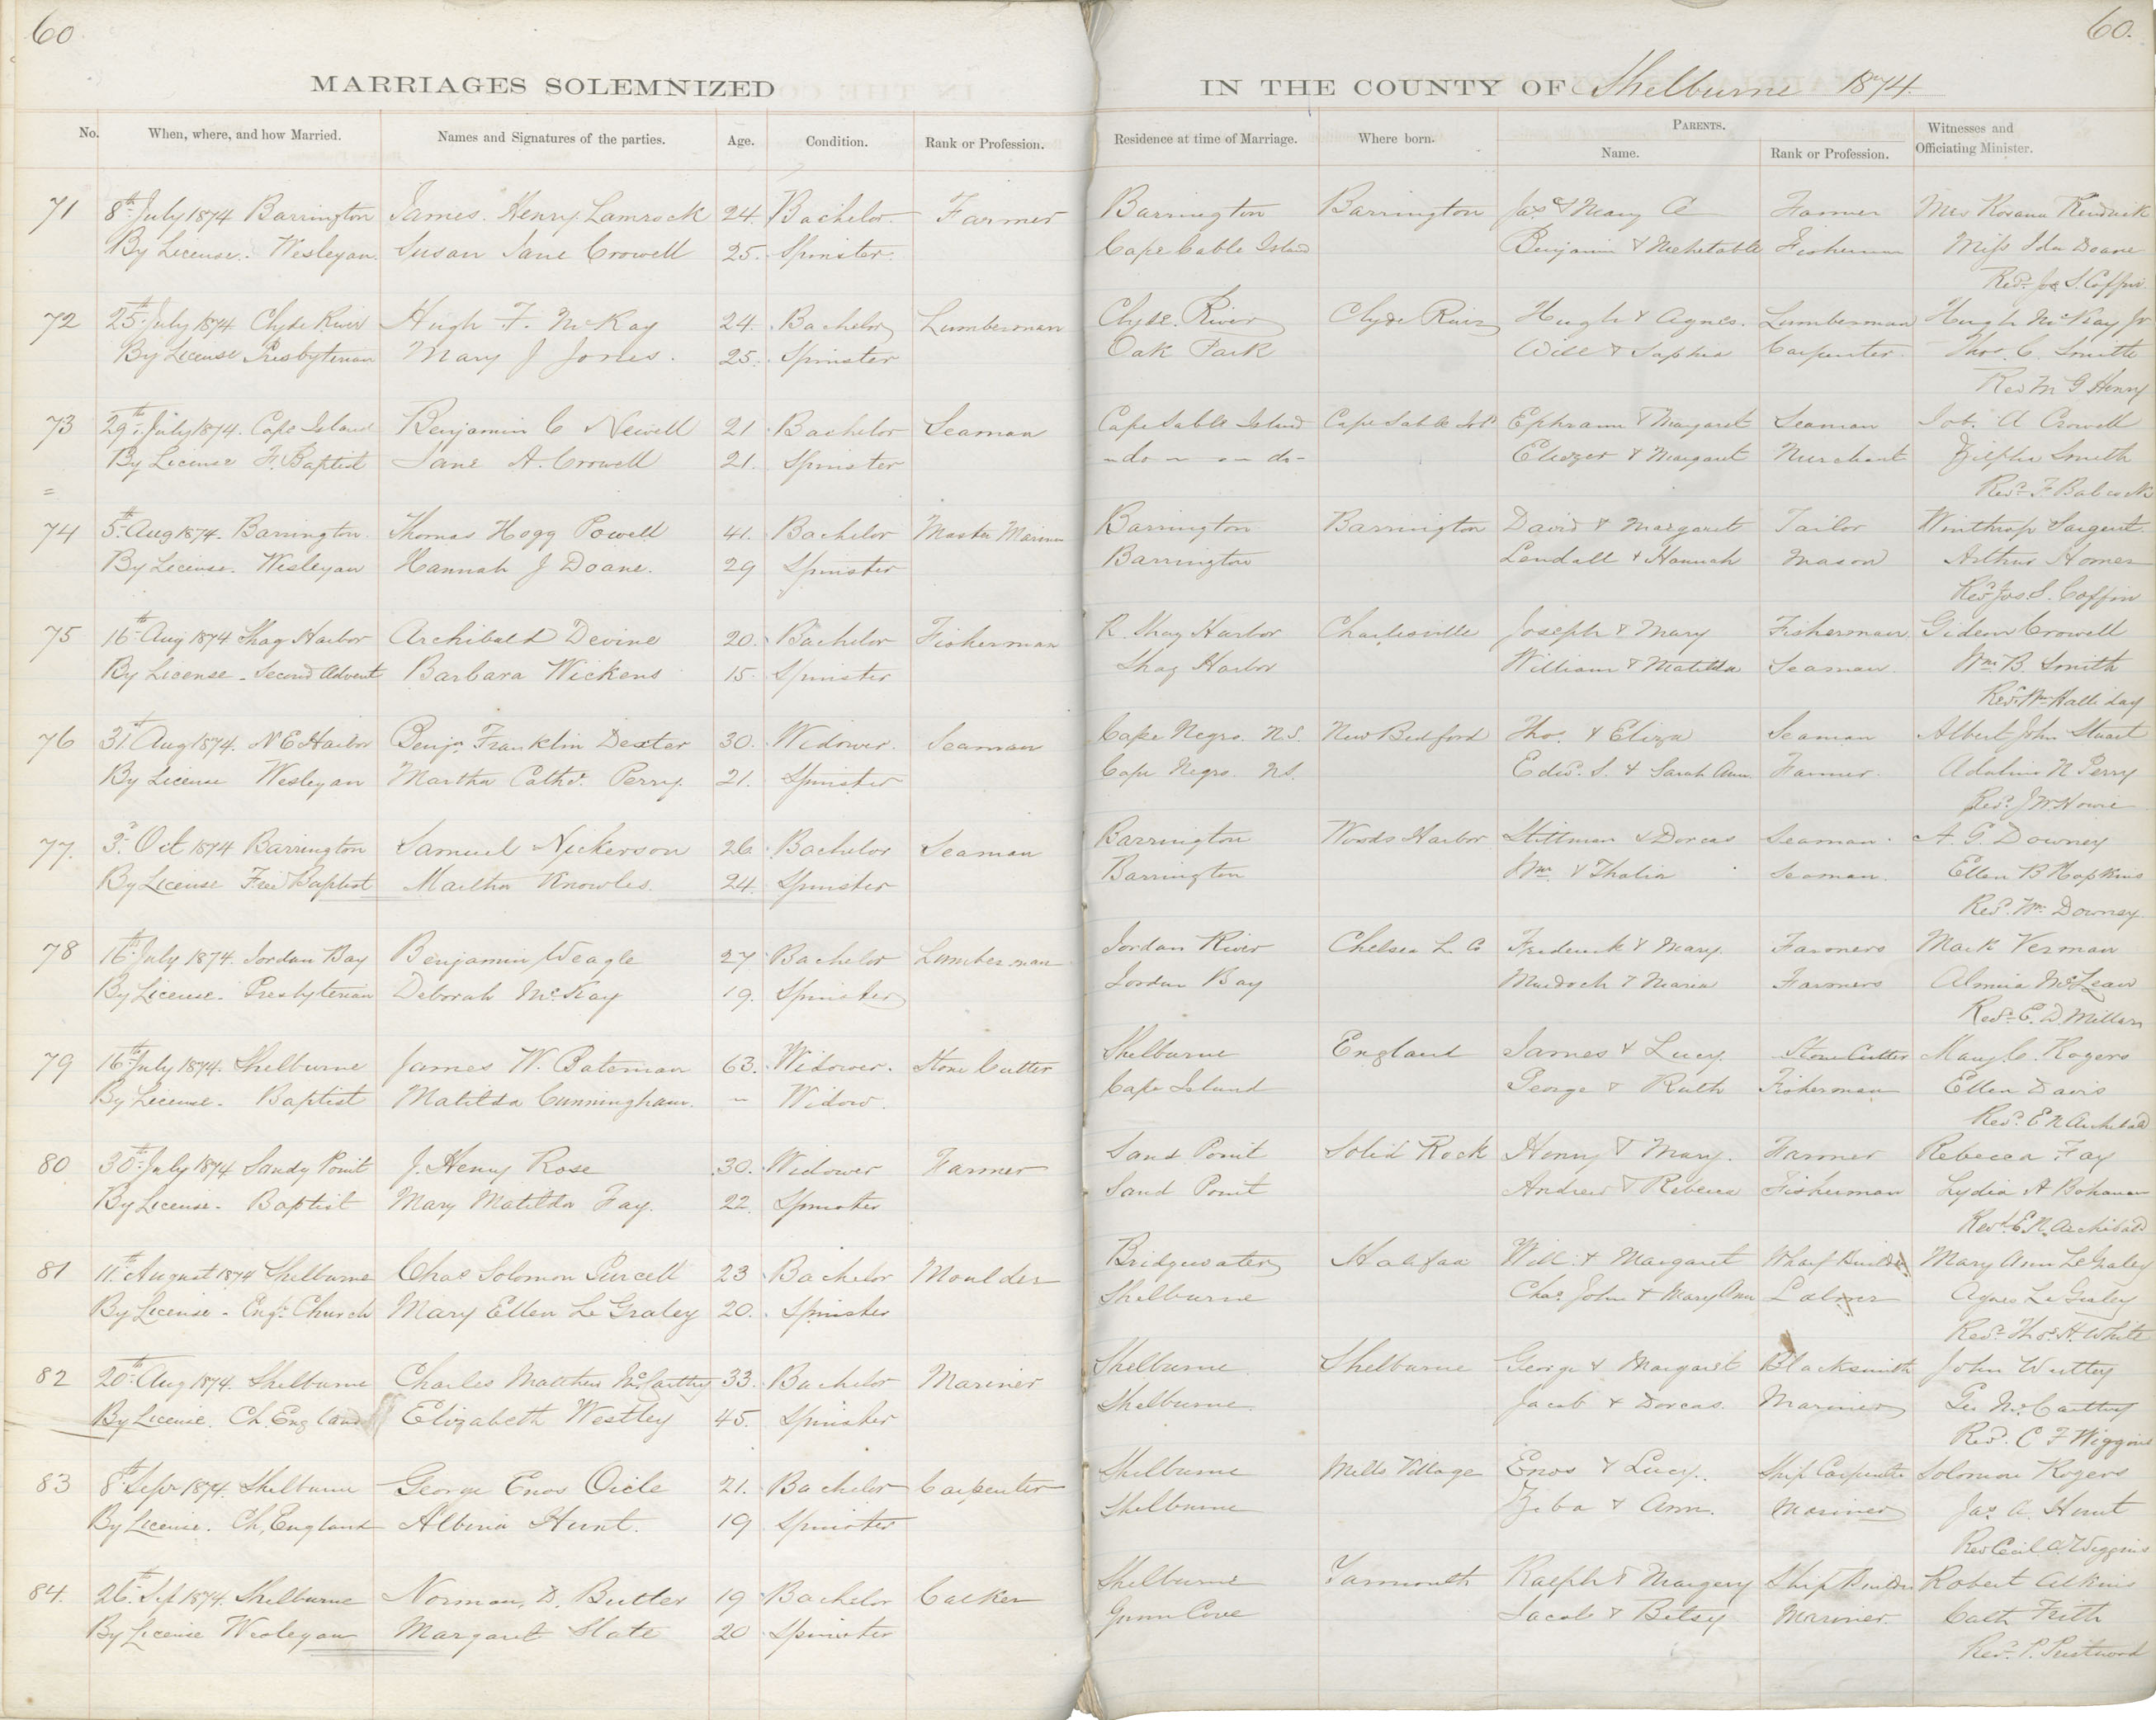 60
60.
MARRIAGES SOLEMNIZED IN THE COUNTY OF Shelburne 1874.
No. When, where, and how Married. Names and Signatures of the parties. Age. Condition. Rank or Profession. Residence at time of Marriage. Where born. PARENTS. Name. Rank or Profession. Witnesses and Officiating Minister.
71 8th July 1874 Barrington James. Henry. Lamrock 24. Bachelor Farmer Barrington Barrington Jas & Mary C Farmer Mrs Rosana Kendrick
By License. Wesleyan. Susan Jane Crowell 25. Spinster. Cape Cable Island Benjamin & Mehetable Fisherman Miss Ida Doane
Revd. Jos S. Coffin.
72 25th July 1874 Clyde River Hugh F. McKay 24. Bachelor Lumberman Clyde River Clyde River Hugh & Agnes. Lumberman Hugh McKay Jr
By License Presbyterian Mary J Jones. 25. Spinster Oak Park Will & Sophia Carpenter Thos. C. Smith
Rev M G Henry
73 29th July 1874. Cape Island Benjamin C Newell 21 Bachelor Seaman Cape Sable Island Cape Sable Isd Ephraim & Margaret Seaman Job. A Crowell
By License F. Baptist Jane A. Crowell 21. Spinster -do- -do- Eliezer & Margaret Merchant Zilpha Smith
Revd. F Babcock
74 5th Aug 1874. Barrington. Thomas Hogg Powell 41. Bachelor Master Mariner Barrington Barrington David & Margaret Tailor Winthrop Sargent.
By License. Wesleyan Hannah J Doane. 29 Spinster Barrington Lendall & Hannah Mason Arthur Homer
Revd Jos. S. Coffin
75 16th Aug 1874 Shag Harbor Archibald Devine 20. Bachelor Fisherman R. Shag Harbor Charlesville Joseph & Mary Fisherman Gideon Crowell
By License - Second Advent Barbara Wickens 15 Spinster Shag Harbor William & Matilda Seaman Wm B. Smith
Revd Wm Halliday
76 31st Aug 1874. N E Harbor Benjn Franklin Dexter 30. Widower. Seaman Cape Negro. N.S. New Bedford Thos. & Eliza Seaman Albert John Stuart
By License Wesleyan Martha Cathe. Perry. 21. Spinster Cape Negro. N.S. Edwd. S. & Sarah Ann Farmer. Adaline N Perry
Revd. J W Howie
77. 3d. Oct 1874 Barrington Samuel Nickerson 26. Bachelor Seaman Barrington Woods Harbor Stillman & Dorcas Seaman A. G. Downey
By License Free Baptist Martha Knowles. 24. Spinster Barrington Wm. & Thalia Seaman. Ellen B Hopkins
Revd. Wm. Downey
78 16th July 1874. Jordan Bay Benjamin Weagle 27 Bachelor Lumberman Jordan River Chelsea L. Co Frederick & Mary. Farmers Mark Verman
By License. Presbyterian Deborah McKay 19. Spinster Jordan Bay Murdoch & Maria Farmers Almira McLean
Revd. E. D. Millar
79 16th July 1874. Shelburne James W. Bateman 63. Widower. Stone Cutter Shelburne England James & Lucy. Stone Cutter Mary C. Rogers
By License. Baptist Matilda Cunningham. - Widow. Cape Island George & Ruth Fisherman Ellen Davis
Revd. E N Archibald
80 30th July 1874 Sandy Point J. Henry Rose 30. Widower Farmer Sand Point Solid Rock Henry & Mary. Farmer Rebecca Fay
By License. Baptist Mary Matilda Fay. 22. Spinster Sand Point Andrew & Rebecca Fisherman Lydia A Bohanan
Revd. E. N. Archibald
81 11th August 1874 Shelburne Chas Solomon Purcell 23 Bachelor Moulder Bridgewater Halifax Will. & Margaret Wharf Builder Mary Ann Le Graley
By License - Engd. Church Mary Ellen Le Graley 20. Spinster Shelburne Chas. John & Mary Ann Labrer Agnes Le Graley
Revd. Thos. H. White
82 20th Aug 1874. Shelburne Charles Matthew McCarthy 33. Bachelor Mariner Shelburne Shelburne George & Margaret Blacksmith John
By License. Ch. England Elizabeth Westley 45. Spinster Shelburne. Jacob & Dorcas. Mariner Geo McCarthy
Revd. C F Wiggins
83 8th Sepr 1874. Shelburne George Enos Oicle 21. Bachelor Carpenter Shelburne Mills Village Enos & Lucy. Ship Carpenter Solomon Rogers
By License. Ch, England Albinia Hunt. 19 Spinster Shelburne Ziba & Ann. Mariner Jas. A. Hunt
Rev Cecil Wiggins
84. 26th Sep 1874. Shelburne Norman. D. Butler 19 Bachelor Calker Shelburne Yarmouth Ralph & Margery Ship Builder Robert Atkins
By License Wesleyan Margaret Slate 20 Spinster Gunn Cove Jacob & Betsy Mariner. Cath Frith
Revd. P. Prestwood